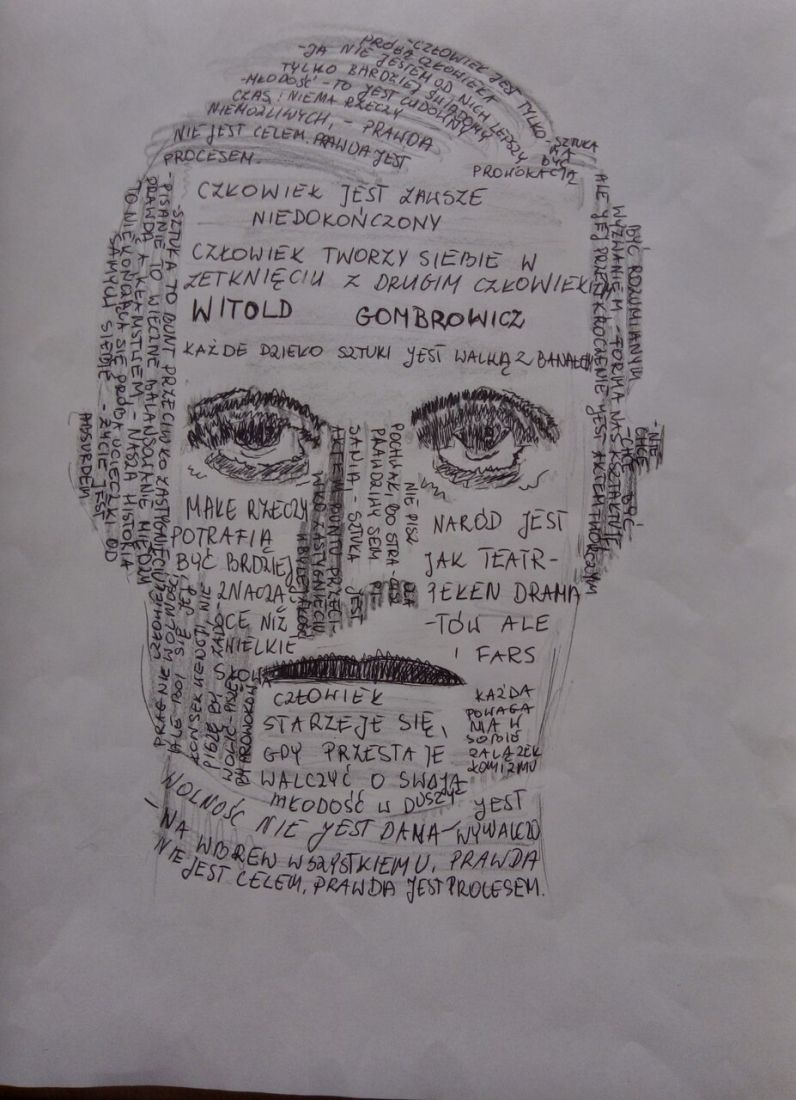 -CZŁOWIEK JEST TYLKO
PRÓBĄ CZŁOWIEKA
-JA NIE JESTEM OD NICH LEPSZY
TYLKO BARDZIEJ ŚWIADOMY
-MŁODOŚĆ - TO JEST CUDOWNY
CZAS: NIEMA RZECZY
NIEMOŻLIWYCH, - PRAWDA
NIE JEST CELEM. PRAWDA JEST
PROCESEM.
-SZTUKA
MA
BYĆ
PROWOKACJĄ
CZŁOWIEK JEST ZAWSZE
NIEDOKOŃCZONY
CZŁOWIEK TWORZY SIEBIE W
ZETKNIĘCIU Z DRUGIM CZŁOWIEKIEM
WITOLD GOMBROWICZ
KAŻDE DZIEKO SZTUKI JEST WALKĄ Z BANAŁEM
SZTUKA TO BUNT PRZECIWKO ZASTYGNIĘCIU
-PISANIE TO WIECZNE BALANSOWANIE MIĘDZY
PRAWDĄ A KŁAMSTWEM. - NASZA HISTORIA
TO NIEKOŃCZĄCA SIĘ PRÓBA UCIECZKI OD
SAMYCH SIEBIE - ŻYCIE JEST
ABSURDEM
-NIE
CHCĘ
BYĆ ROZUMIANYM
CHCĘ BYĆ
WYZWANIEM -FORMA NAS KSZTAŁTUJE
ALE JEJ PRZEKROCZENIE JEST AKTEM TWÓRCZYM
NIE PISZ DLA
POCHWAŁ, BO STRA-CISZ
PRAWDZIWY SENS PI-
SANIA, - SZTUKA JEST
AKTEM BUNTU PRZECI-
WKO ZASTYGNIĘCIU
MAŁE RZECZY
POTRAFIĄ
BYĆ BRDZIEJ
ZNACZĄ-
CE NIŻ
WIELKIE
SŁOWA
NARÓD JEST
JAK TEATR-
PEŁEN DRAMA
-TÓW ALE
I FARS
CZŁOWIEK
STARZEJE SIĘ,
GDY PRZESTAJE
WALCZYĆ O SWOJĄ
MŁODOŚĆ W DUSZY
KAŻDA
POWAGA
MA W
SOBIE
ZALĄŻEK
KOMIZMU
WOLNOŚĆ NIE JEST DANA - JEST WYWALCZO
-NA WBREW WSZYSTKIEMU, PRAWDA
NIE JEST CELEM, PRAWDA JEST PROCESEM.